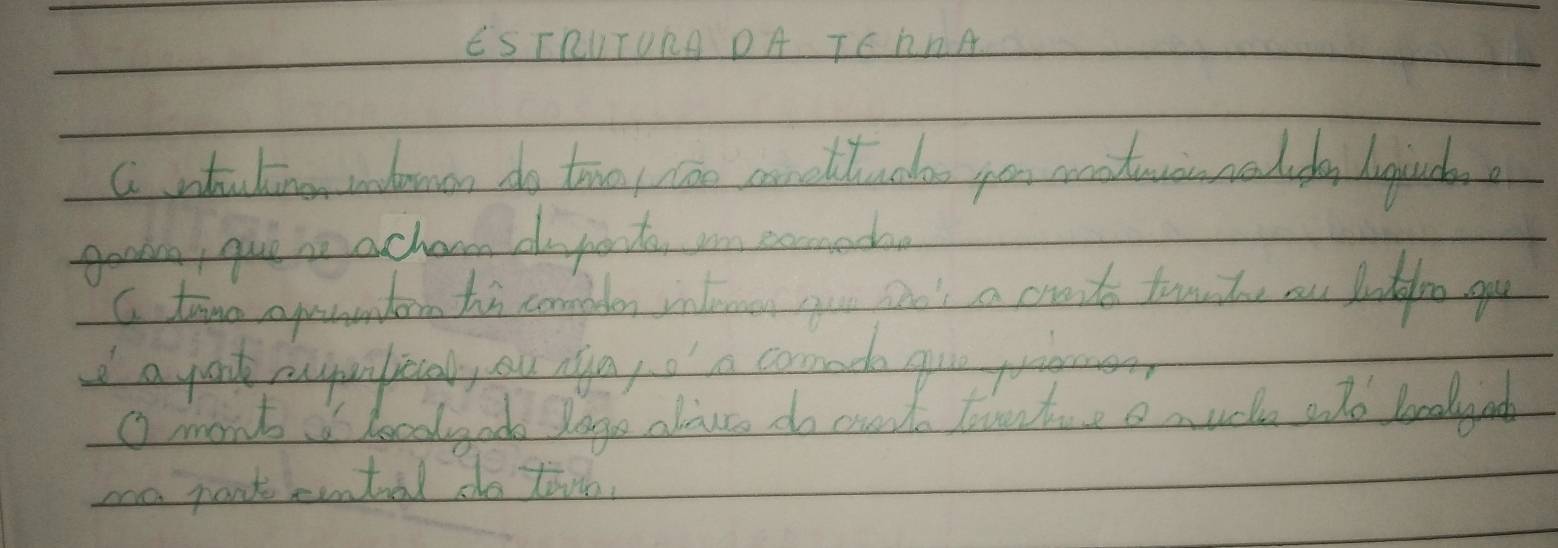 ESTRUTURA DA TERRA
A estruturas internas da terra, são constituidas por materiais solidos liquidos e
gasosos, que se acham disposta em camadas
A terra apresentam três camadas internas que são: a crosta terrestre ou litosfera que
é a parte superficial, ou seja, é a camada que pisamos,
O manto é localizado logo abaixo da crosta terrestre e o nucleo está localizado
na parte central da terra.